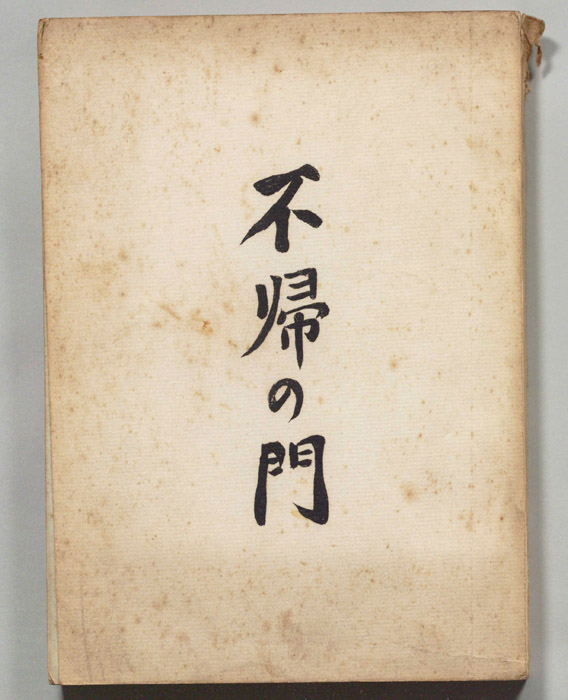 不帰の門